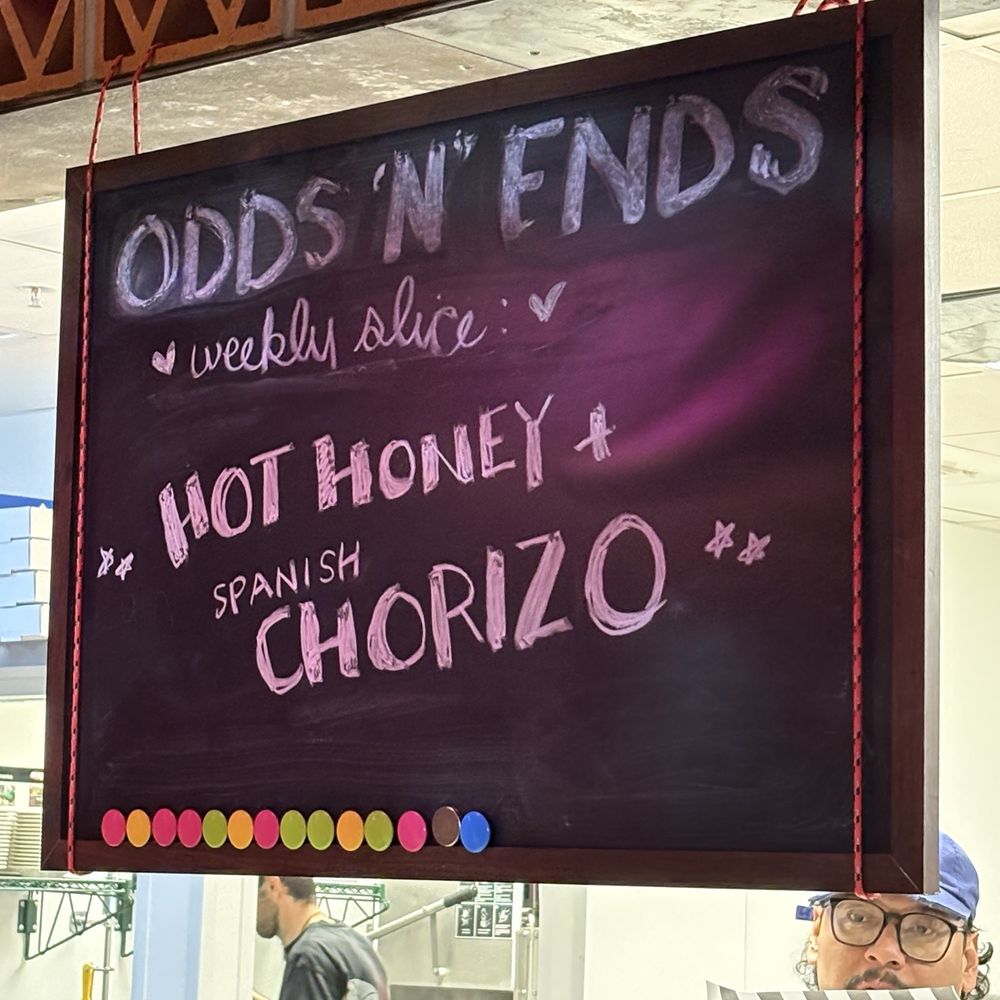 ODDS 'N' ENDS
weekly slice:
HOT HONEY +
SPANISH
CHORIZO